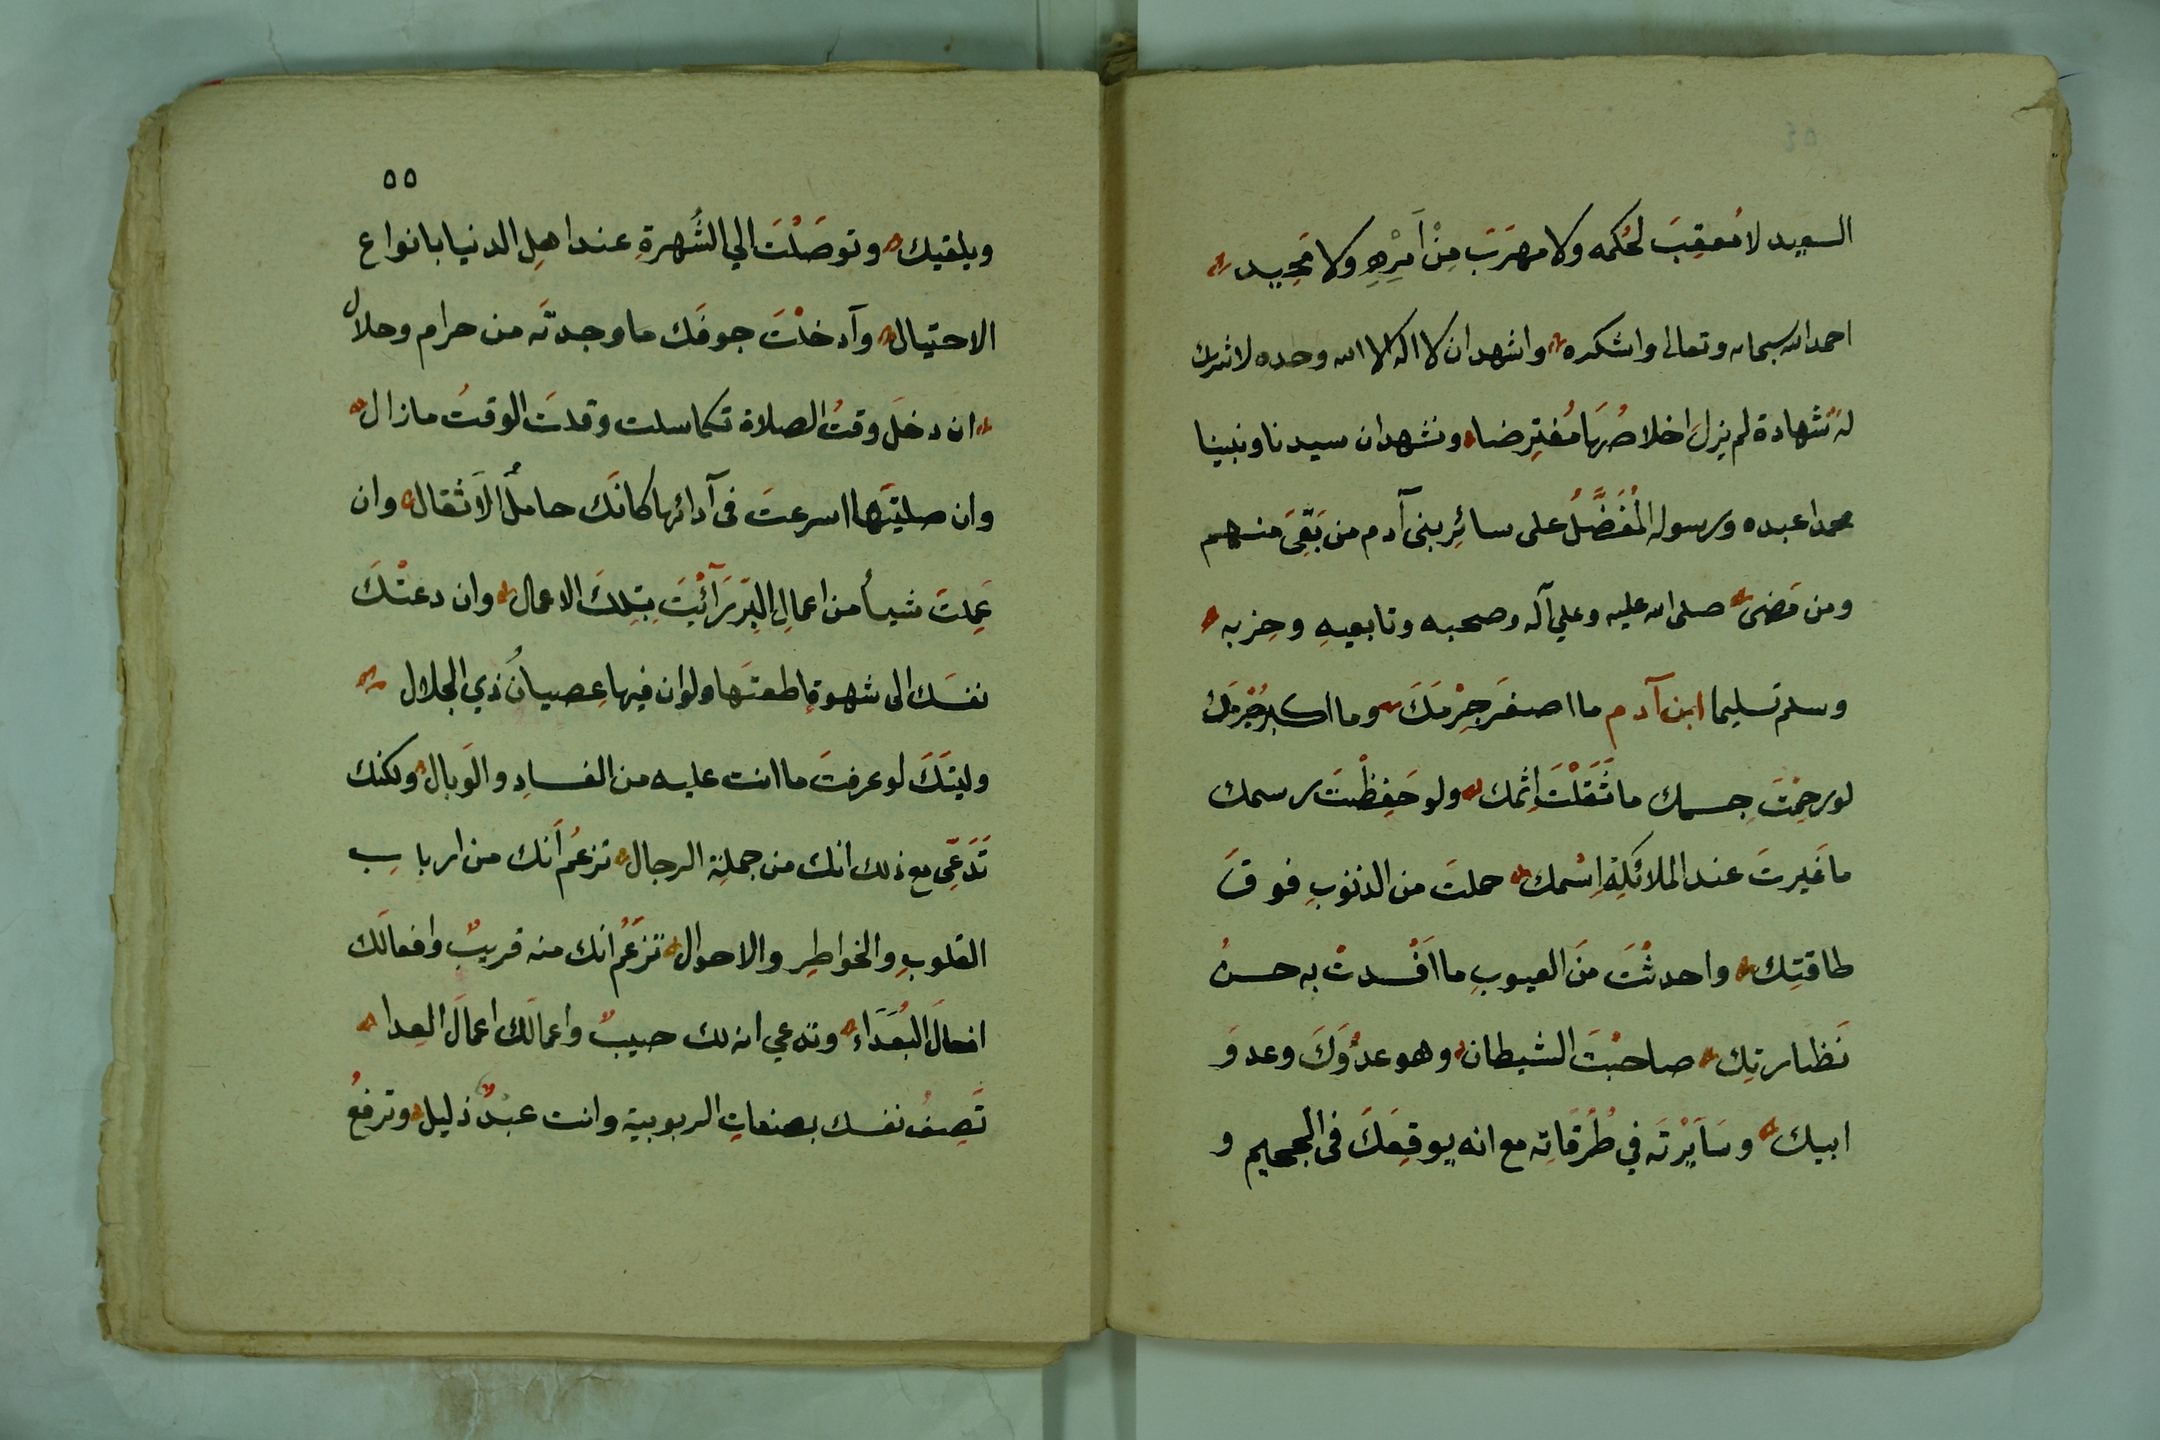 السعيد لا مُعقِبَ لحُكمه ولا مهرَبَ مِنْ اَمرِهِ ولا مَحِيد
احمد الله سبحانه وتعالى واشكره واشهد ان لا اله الا الله وحده لا شريك
له شهادة لم يزل اخلاصُهَا مُفترِضا ونشهد ان سيدنا ونبينا
محمدا عبده ورسوله المُفَضَّلُ على سائِر بنى آدم من بَقِىَ منهم
ومن مَضى صلى الله عليه وعلي آله وصحبه وتابعيهِ وحِزبه
وسلم تسليما ابن آدم ما اصغَر جِرْمَكَ وما اكبر جُرْمَك
لو رحِمْتَ جِسمك ما ثَقَلْتَ اِثمك ولو حَفِظْتَ رسمك
ما غَيرتَ عند الملائكةِ اِسْمك حملتَ من الذنوبِ فوقَ
طاقتِك واحدثْتَ مَن العيوبِ ما اَفْسدتْ به حسنُ
نَظارتِك صاحبْتَ الشيطان وهو عدُوَكَ وعدوَ
ابيك وسَايَرْتَه في طُرُقاتِه مع انه يوقِعَكَ فى الجحيم و
٥٥
ويلقيك وتوصَلْتَ الي الشُهرةِ عند اهلِ الدنيا بانواع
الاحتيال وآدخلْتَ جوفَك ما وجدتَه من حرام وحلال
ان دخلَ وقتُ الصلاة تكاسلت وقلتَ الوقتُ مازال
وان صليتَها اسرعتَ فى آدائها كانَك حاملُ الاَثقال وان
عَمِلتَ شيأ من اعمالِ البِرّ رَآئيْتَ بتِلكَ الاعمال وان دعتْكَ
نفسَك الى شهوةٍ اطعتَها ولو ان فيها عِصيانُ ذي الجلال
وليتَكَ لو عرفتَ ما انت عليه من الفسادِ والوَبال ولكنك
تَدَعِّى مع ذلك انك من جملةِ الرجال تزعُم اَنك من اربابِ
القلوبِ والخواطِرِ والاحوال تزعُمُ انك منه قريبٌ وافعالَك
افعالَ البُعَدَاء وتدعي انه لك حبيبٌ واعمالَك اعمالَ العِدا
تَصِفُ نفسك بصفاتِ الربوبية وانت عبْدٌ ذليل وترفعُ